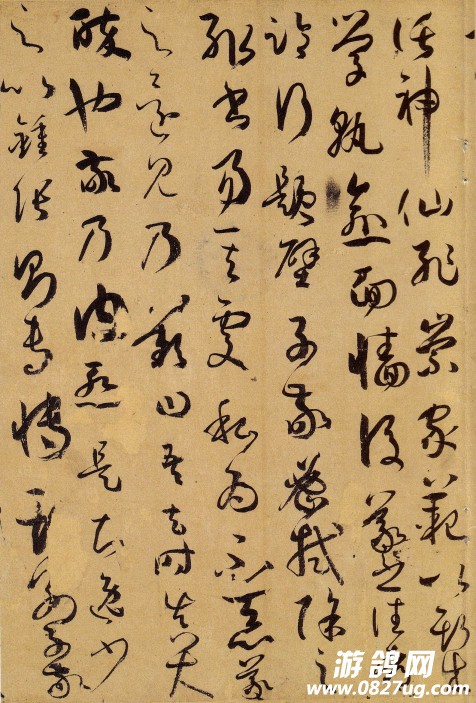 託神仙恥崇家範以斯成
學孰愈面墻後羲之往都
臨行題壁子敬密拭除之
輒書易其處私為不惡羲
之還見乃歎曰吾去時真大
醉也敬乃內慙是知逸少
之比鍾張則專博斯別子敬
游鸽网
www.0827ug.com